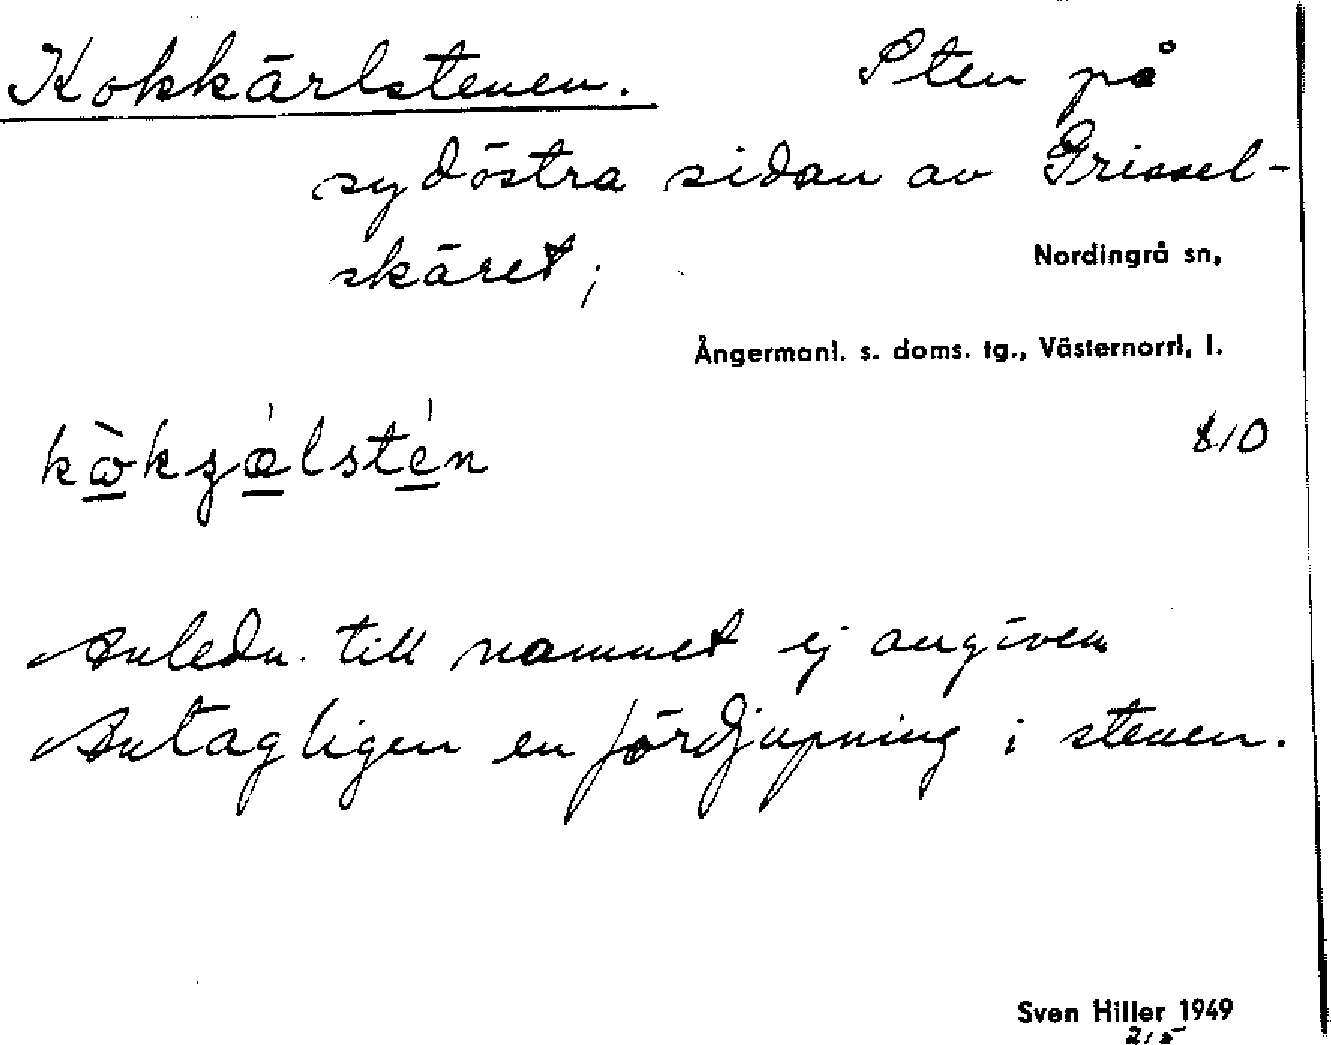 Kokkärlstenen. Sten på
sydöstra sidan av Grissel-
skäret;
Nordingrå sn,
Ångermanl. s. doms. tg., Västernorrl. l.
810
Anledn. till namnet ej angiven
Antagligen en fördjupning i stenen.
Sven Hiller 1949